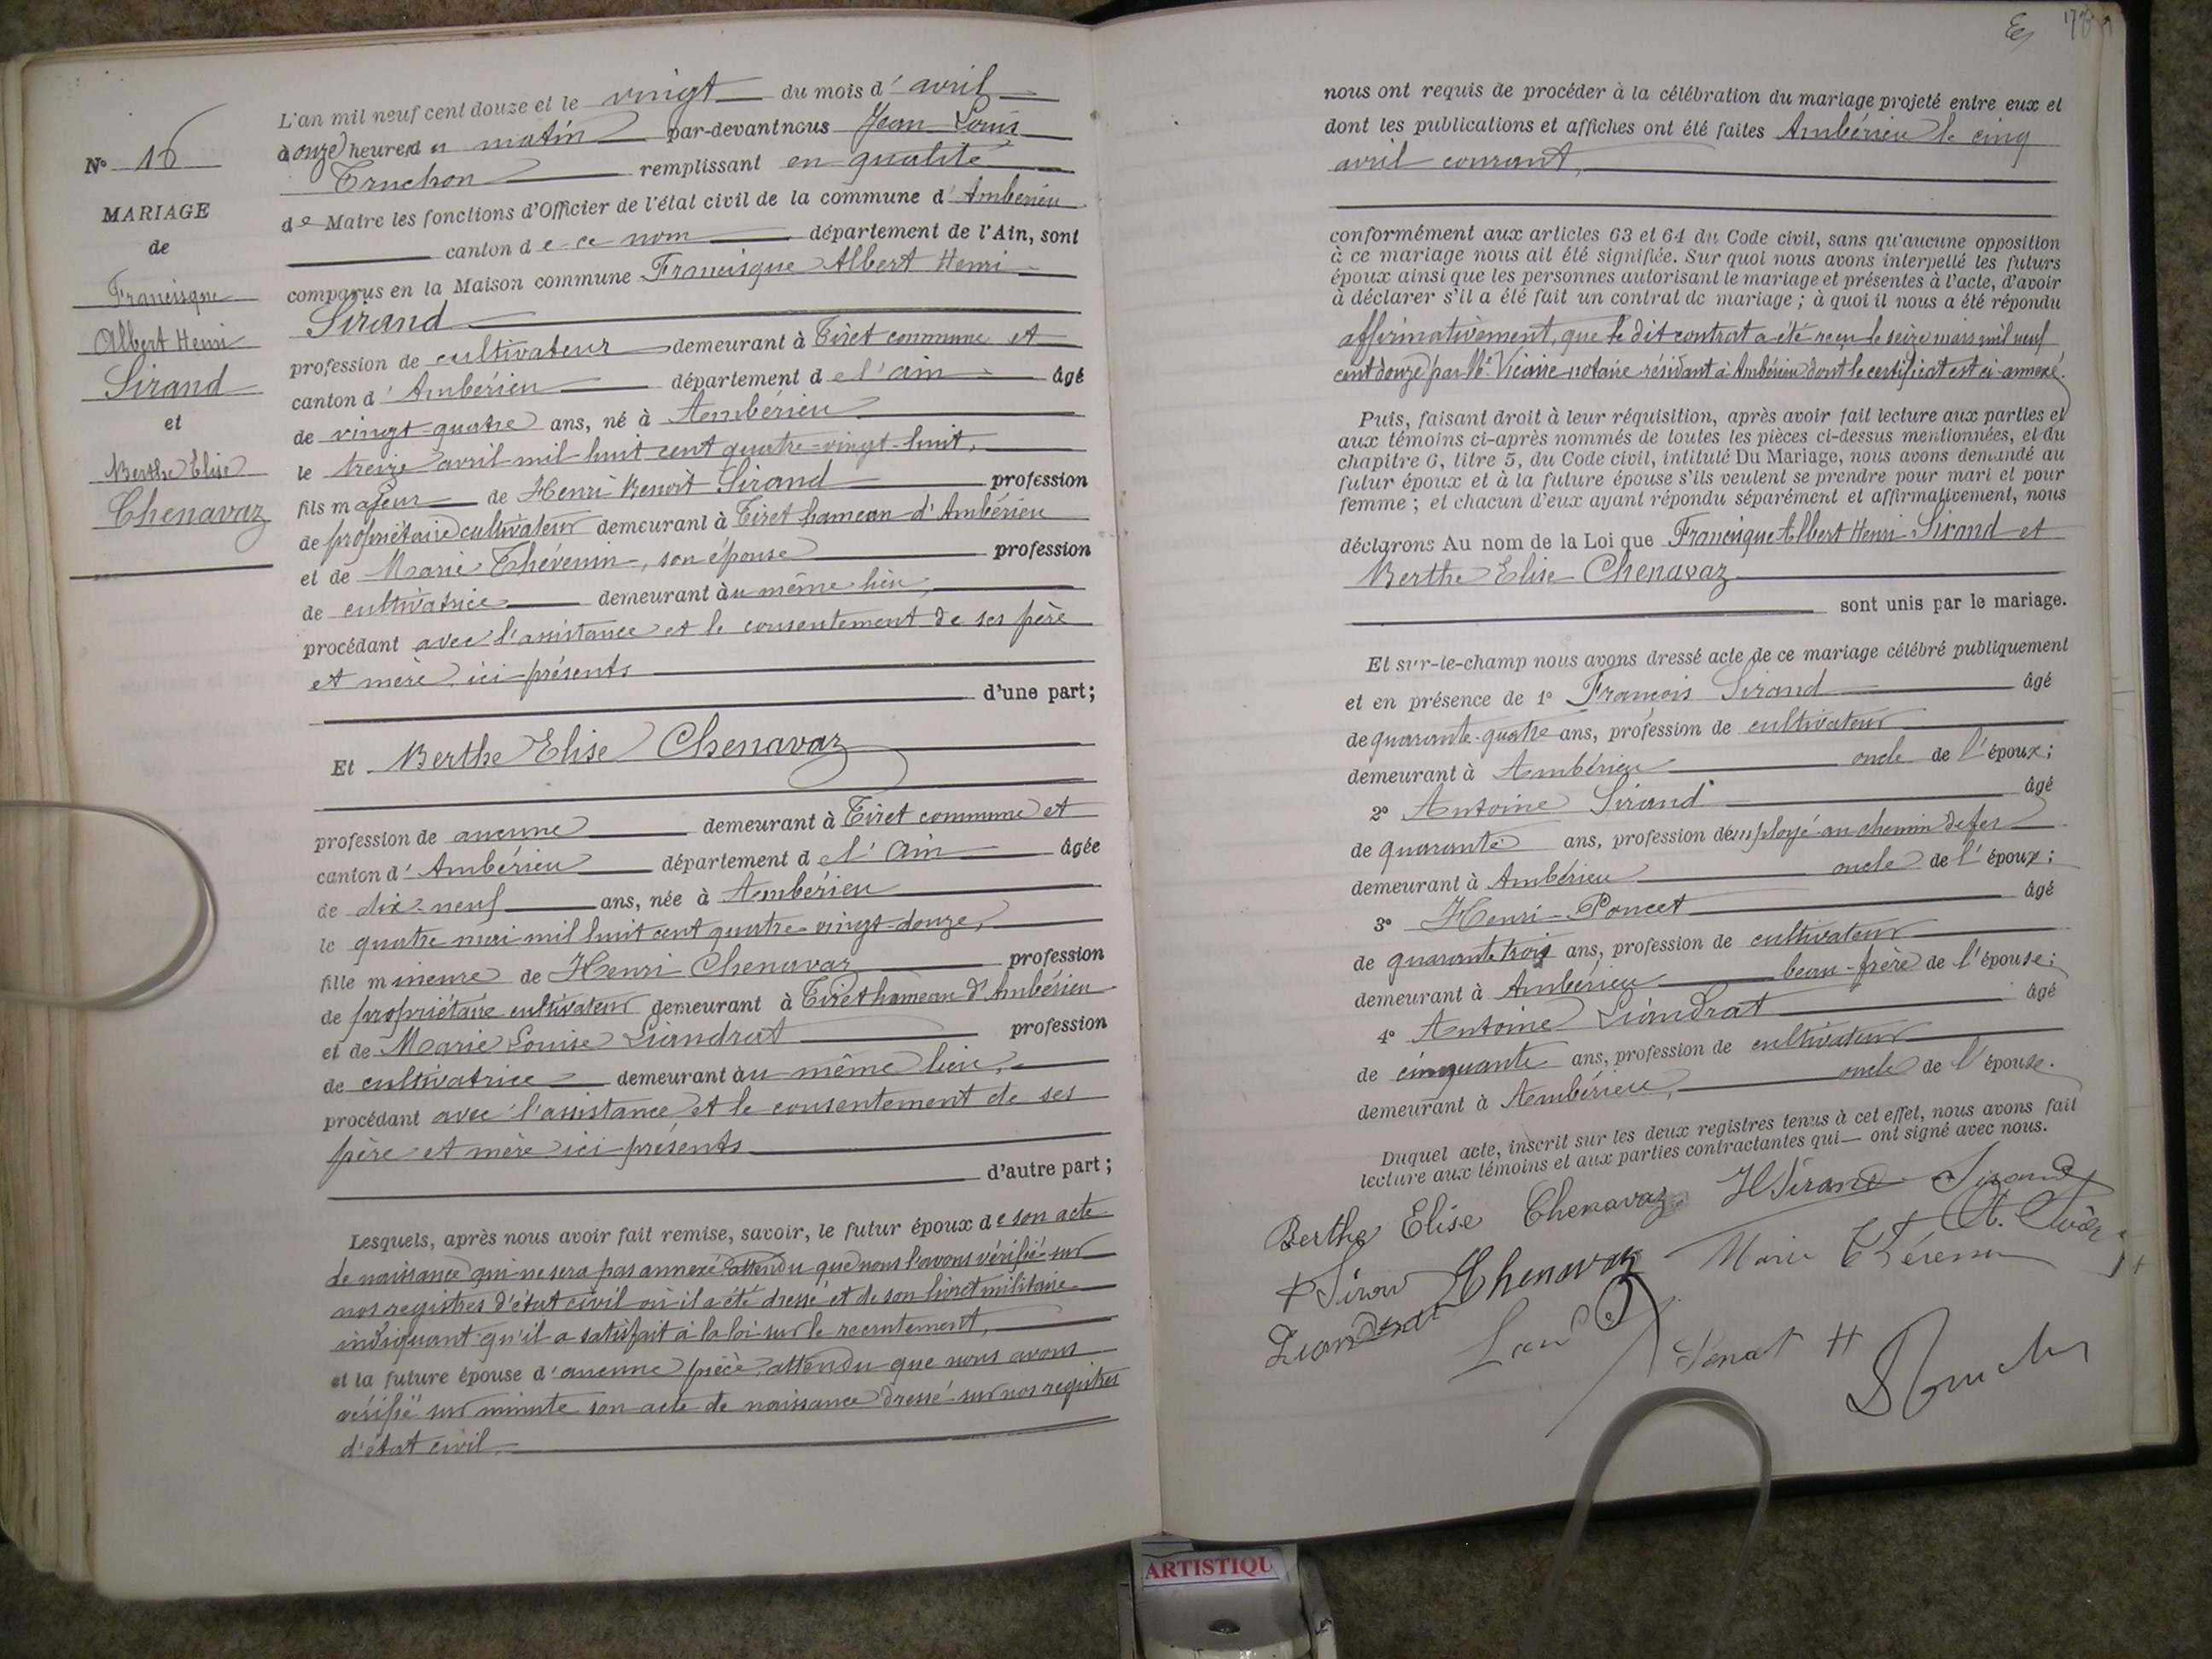 N° 16
MARIAGE
de
Francisque
Albert Henri
Sirand
et
Berthe Elise
Chenavaz
L'an mil neuf cent douze et le vingt du mois d'avril
à onze heures du matin par-devant nous Jean Louis
Truchon remplissant en qualité
de Maire les fonctions d'Officier de l'état civil de la commune d'Ambérieu
canton de ce nom département de l'Ain, sont
comparus en la Maison commune Francisque Albert Henri
Sirand
profession de cultivateur demeurant à Tiret commune et
canton d'Ambérieu département de l'Ain âgé
de vingt-quatre ans, né à Ambérieu
le treize avril mil huit cent quatre-vingt-huit,
fils majeur de Henri Benoît Sirand profession
de propriétaire cultivateur demeurant à Tiret hameau d'Ambérieu
et de Marie Thévenin, son épouse profession
de cultivatrice demeurant au même lieu,
procédant avec l'assistance et le consentement de ses père
et mère ici présents
d'une part;
Et Berthe Elise Chenavaz
profession de aucune demeurant à Tiret commune et
canton d'Ambérieu département de l'Ain âgée
de dix-neuf ans, née à Ambérieu
le quatre mai mil huit cent quatre-vingt-douze,
fille mineure de Henri Chenavaz profession
de propriétaire cultivateur demeurant à Tiret hameau d'Ambérieu
et de Marie Louise Liandrat profession
de cultivatrice demeurant au même lieu,
procédant avec l'assistance et le consentement de ses
père et mère ici présents
d'autre part;
Lesquels, après nous avoir fait remise, savoir, le futur époux de son acte
de naissance qui ne sera pas annexé attendu que nous l'avons vérifié sur
nos registres d'état civil où il a été dressé et de son livret militaire
indiquant qu'il a satisfait à la loi sur le recrutement,
et la future épouse d'aucune pièce, attendu que nous avons
vérifié sur minute son acte de naissance dressé sur nos registres
d'état civil.
nous ont requis de procéder à la célébration du mariage projeté entre eux et
dont les publications et affiches ont été faites Ambérieu le cinq
avril courant,
conformément aux articles 63 et 64 du Code civil, sans qu'aucune opposition
à ce mariage nous ait été signifiée. Sur quoi nous avons interpellé les futurs
époux ainsi que les personnes autorisant le mariage et présentes à l'acte, d'avoir
à déclarer s'il a été fait un contrat de mariage; à quoi il nous a été répondu
affirmativement, que le dit contrat a été reçu le seize mars mil neuf
cent douze par Me Vicaire notaire résidant à Ambérieu dont le certificat est ci-annexé.
Puis, faisant droit à leur réquisition, après avoir fait lecture aux parties et
aux témoins ci-après nommés de toutes les pièces ci-dessus mentionnées, et du
chapitre 6, titre 5, du Code civil, intitulé Du Mariage, nous avons demandé au
futur époux et à la future épouse s'ils veulent se prendre pour mari et pour
femme; et chacun d'eux ayant répondu séparément et affirmativement, nous
déclarons Au nom de la Loi que Francisque Albert Henri Sirand et
Berthe Elise Chenavaz
sont unis par le mariage.
Et sur-le-champ nous avons dressé acte de ce mariage célébré publiquement
et en présence de 1° François Sirand âgé
de quarante-quatre ans, profession de cultivateur
demeurant à Ambérieu oncle de l'époux;
2° Antoine Sirand âgé
de quarante ans, profession d'employé au chemin de fer
demeurant à Ambérieu oncle de l'époux;
3° Henri Poncet âgé
de quarante trois ans, profession de cultivateur
demeurant à Ambérieu beau-frère de l'épouse;
4° Antoine Liandrat âgé
de cinquante ans, profession de cultivateur
demeurant à Ambérieu, oncle de l'épouse.
Duquel acte, inscrit sur les deux registres tenus à cet effet, nous avons fait
lecture aux témoins et aux parties contractantes qui ont signé avec nous.
Berthe Elise Chenavaz H Sirand Sirand
Chenavaz Marie Thévenin
Liandrat
ARTISTIQU